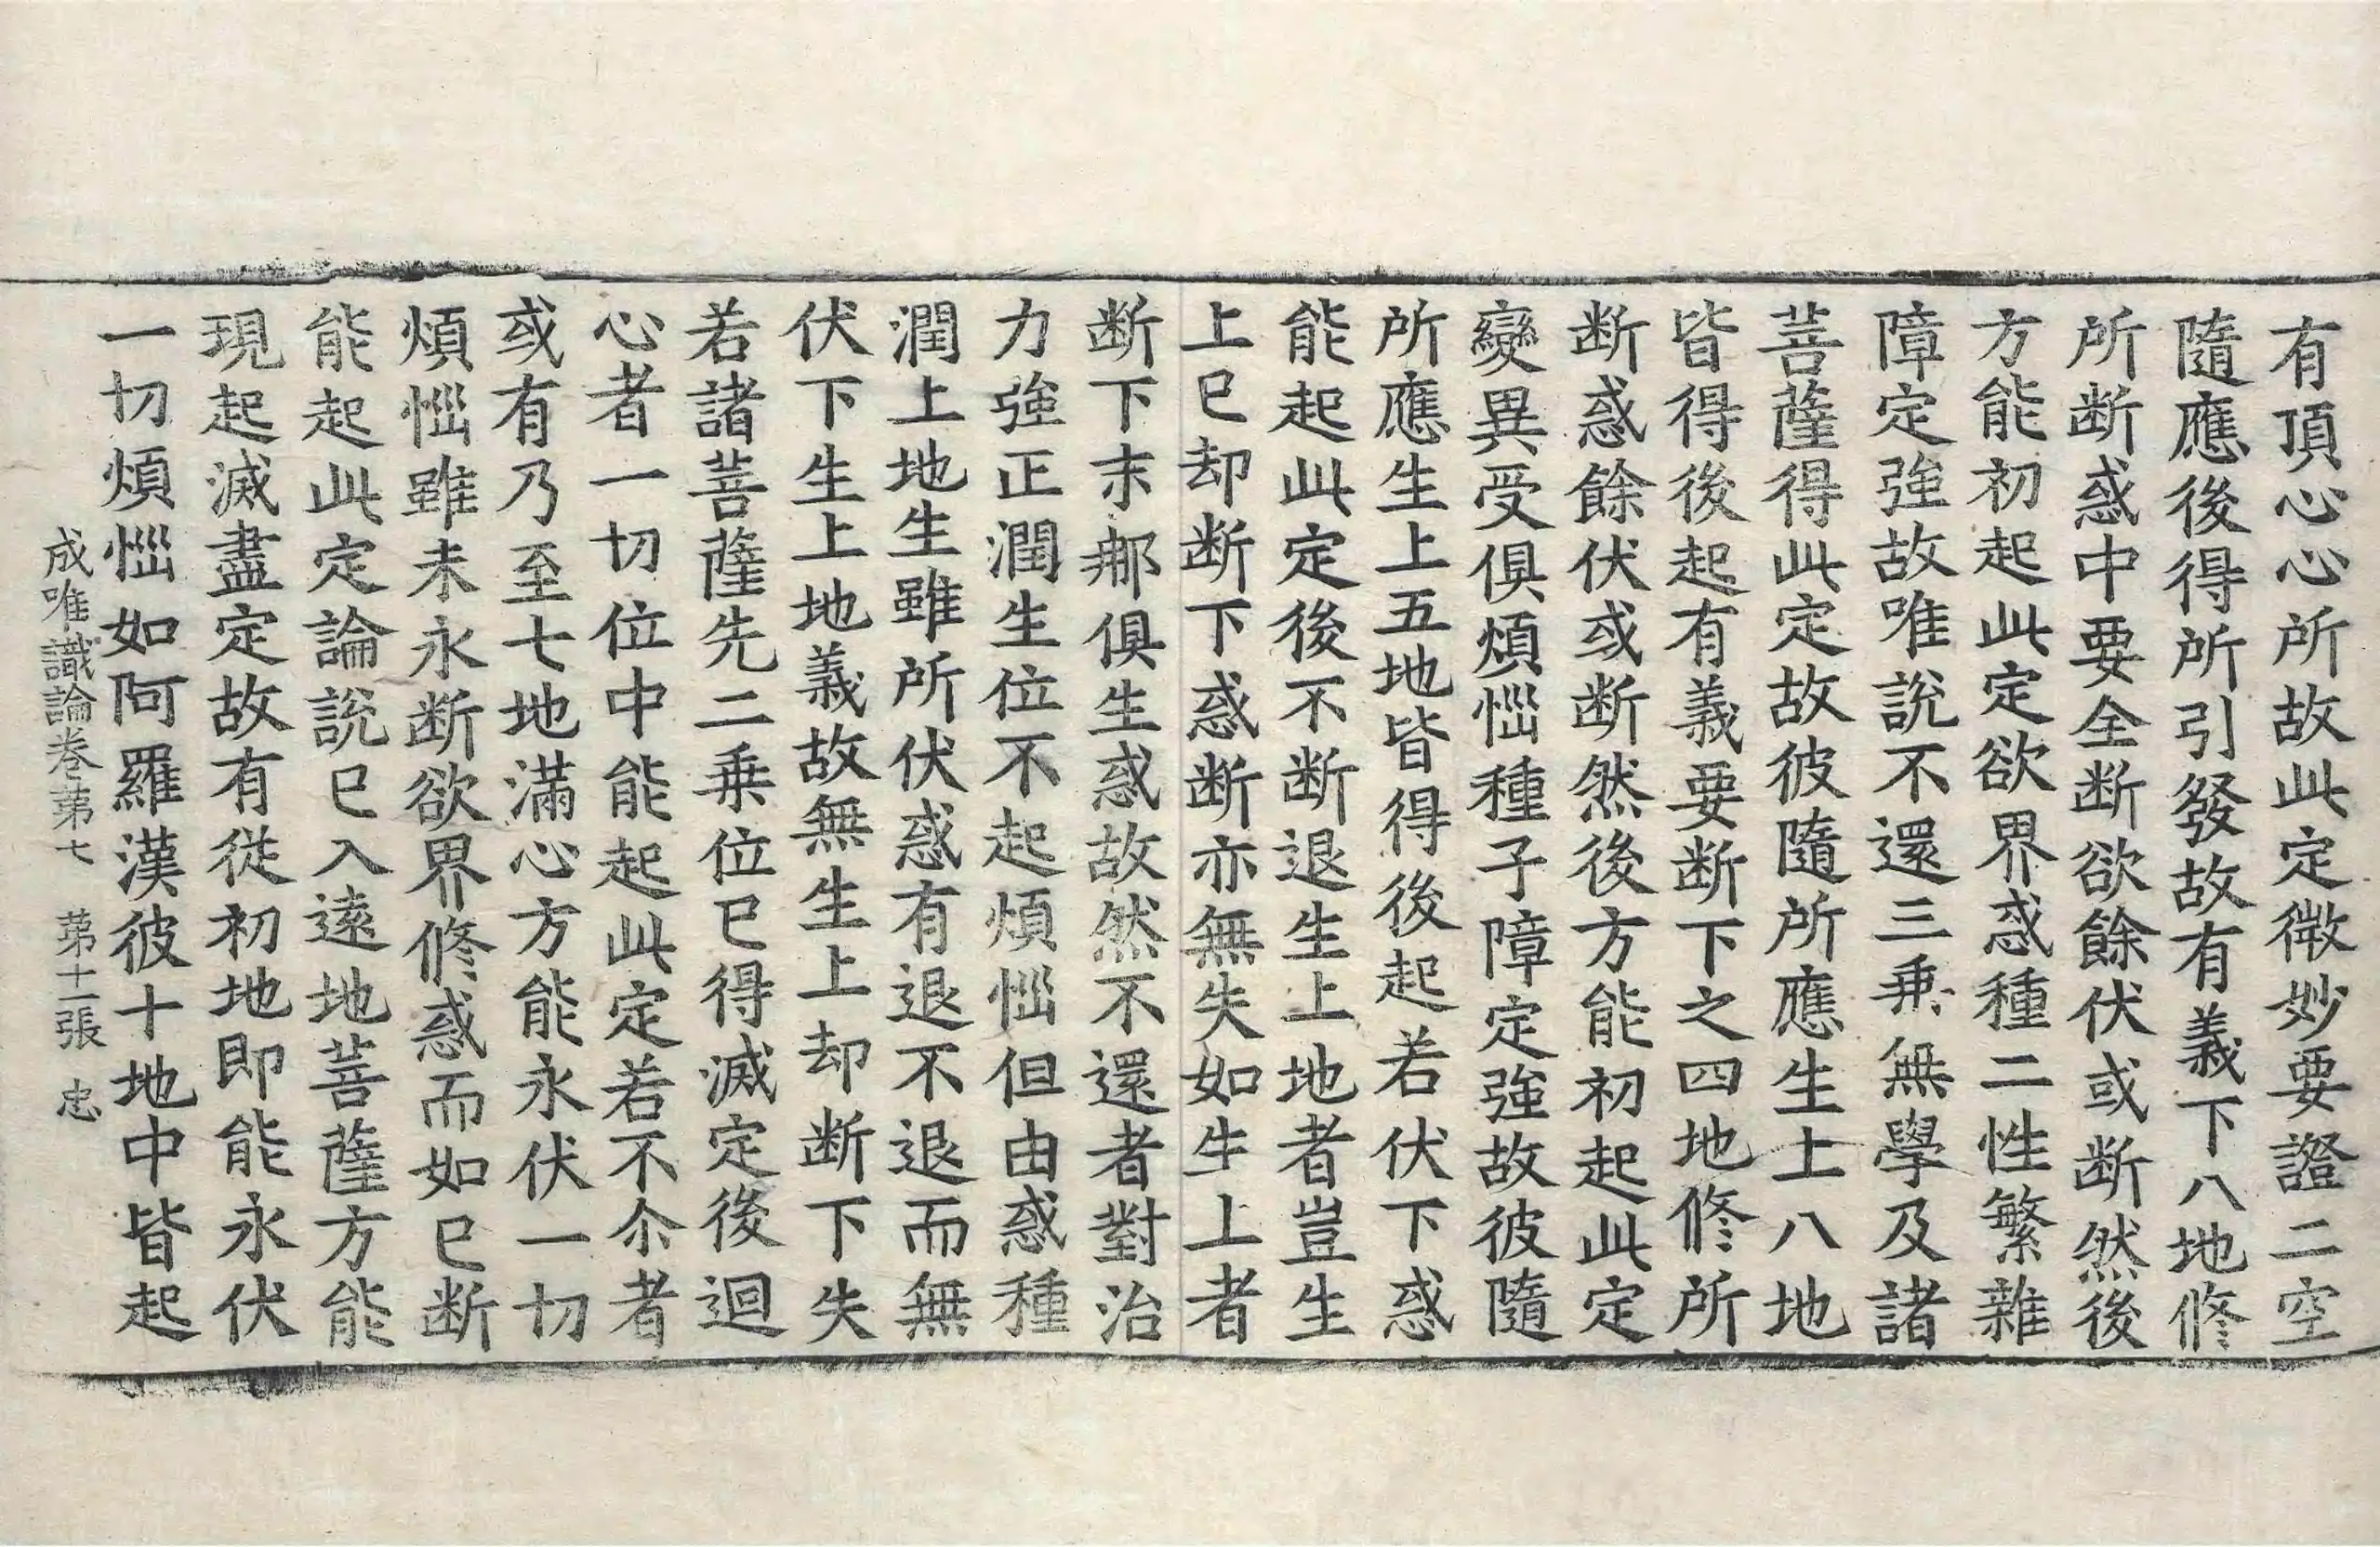 有頂心心所故此定微妙要證二空
隨應後得所引發故有義下八地修
所断惑中要全断欲餘伏或断然後
方能初起此定欲界惑種二性繁雜
障定強故唯說不還三乗無學及諸
菩薩得此定故彼隨所應生上八地
皆得後起有義要断下之四地修所
断惑餘伏或断然後方能初起此定
變異受俱煩惱種子障定強故彼隨
所應生上五地皆得後起若伏下惑
能起此定後不断退生上地者豈生
上已却断下惑断亦無失如生上者
断下末那俱生惑故然不還者對治
力強正潤生位不起煩惱但由惑種
潤上地生雖所伏惑有退不退而無
伏下生上地義故無生上却断下失
若諸菩薩先二乗位已得滅定後迴
心者一切位中能起此定若不尒者
或有乃至七地滿心方能永伏一切
煩惱雖未永断欲界修惑而如已断
能起此定論說已入遠地菩薩方能
現起滅盡定故有從初地即能永伏
一切煩惱如阿羅漢彼十地中皆起
成唯識論卷苐七 苐十二張 忠